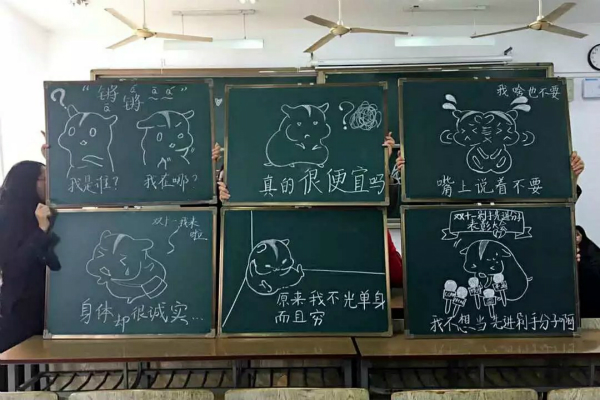 我是谁? 我在哪?
?
真的很便宜吗
我啥也不要
嘴上说着不要
双十一我来
啦
身体却很诚实...
原来我不光单身
而且穷
双十一剁手先进分子
表彰会
我不想当先进剁手分子啊